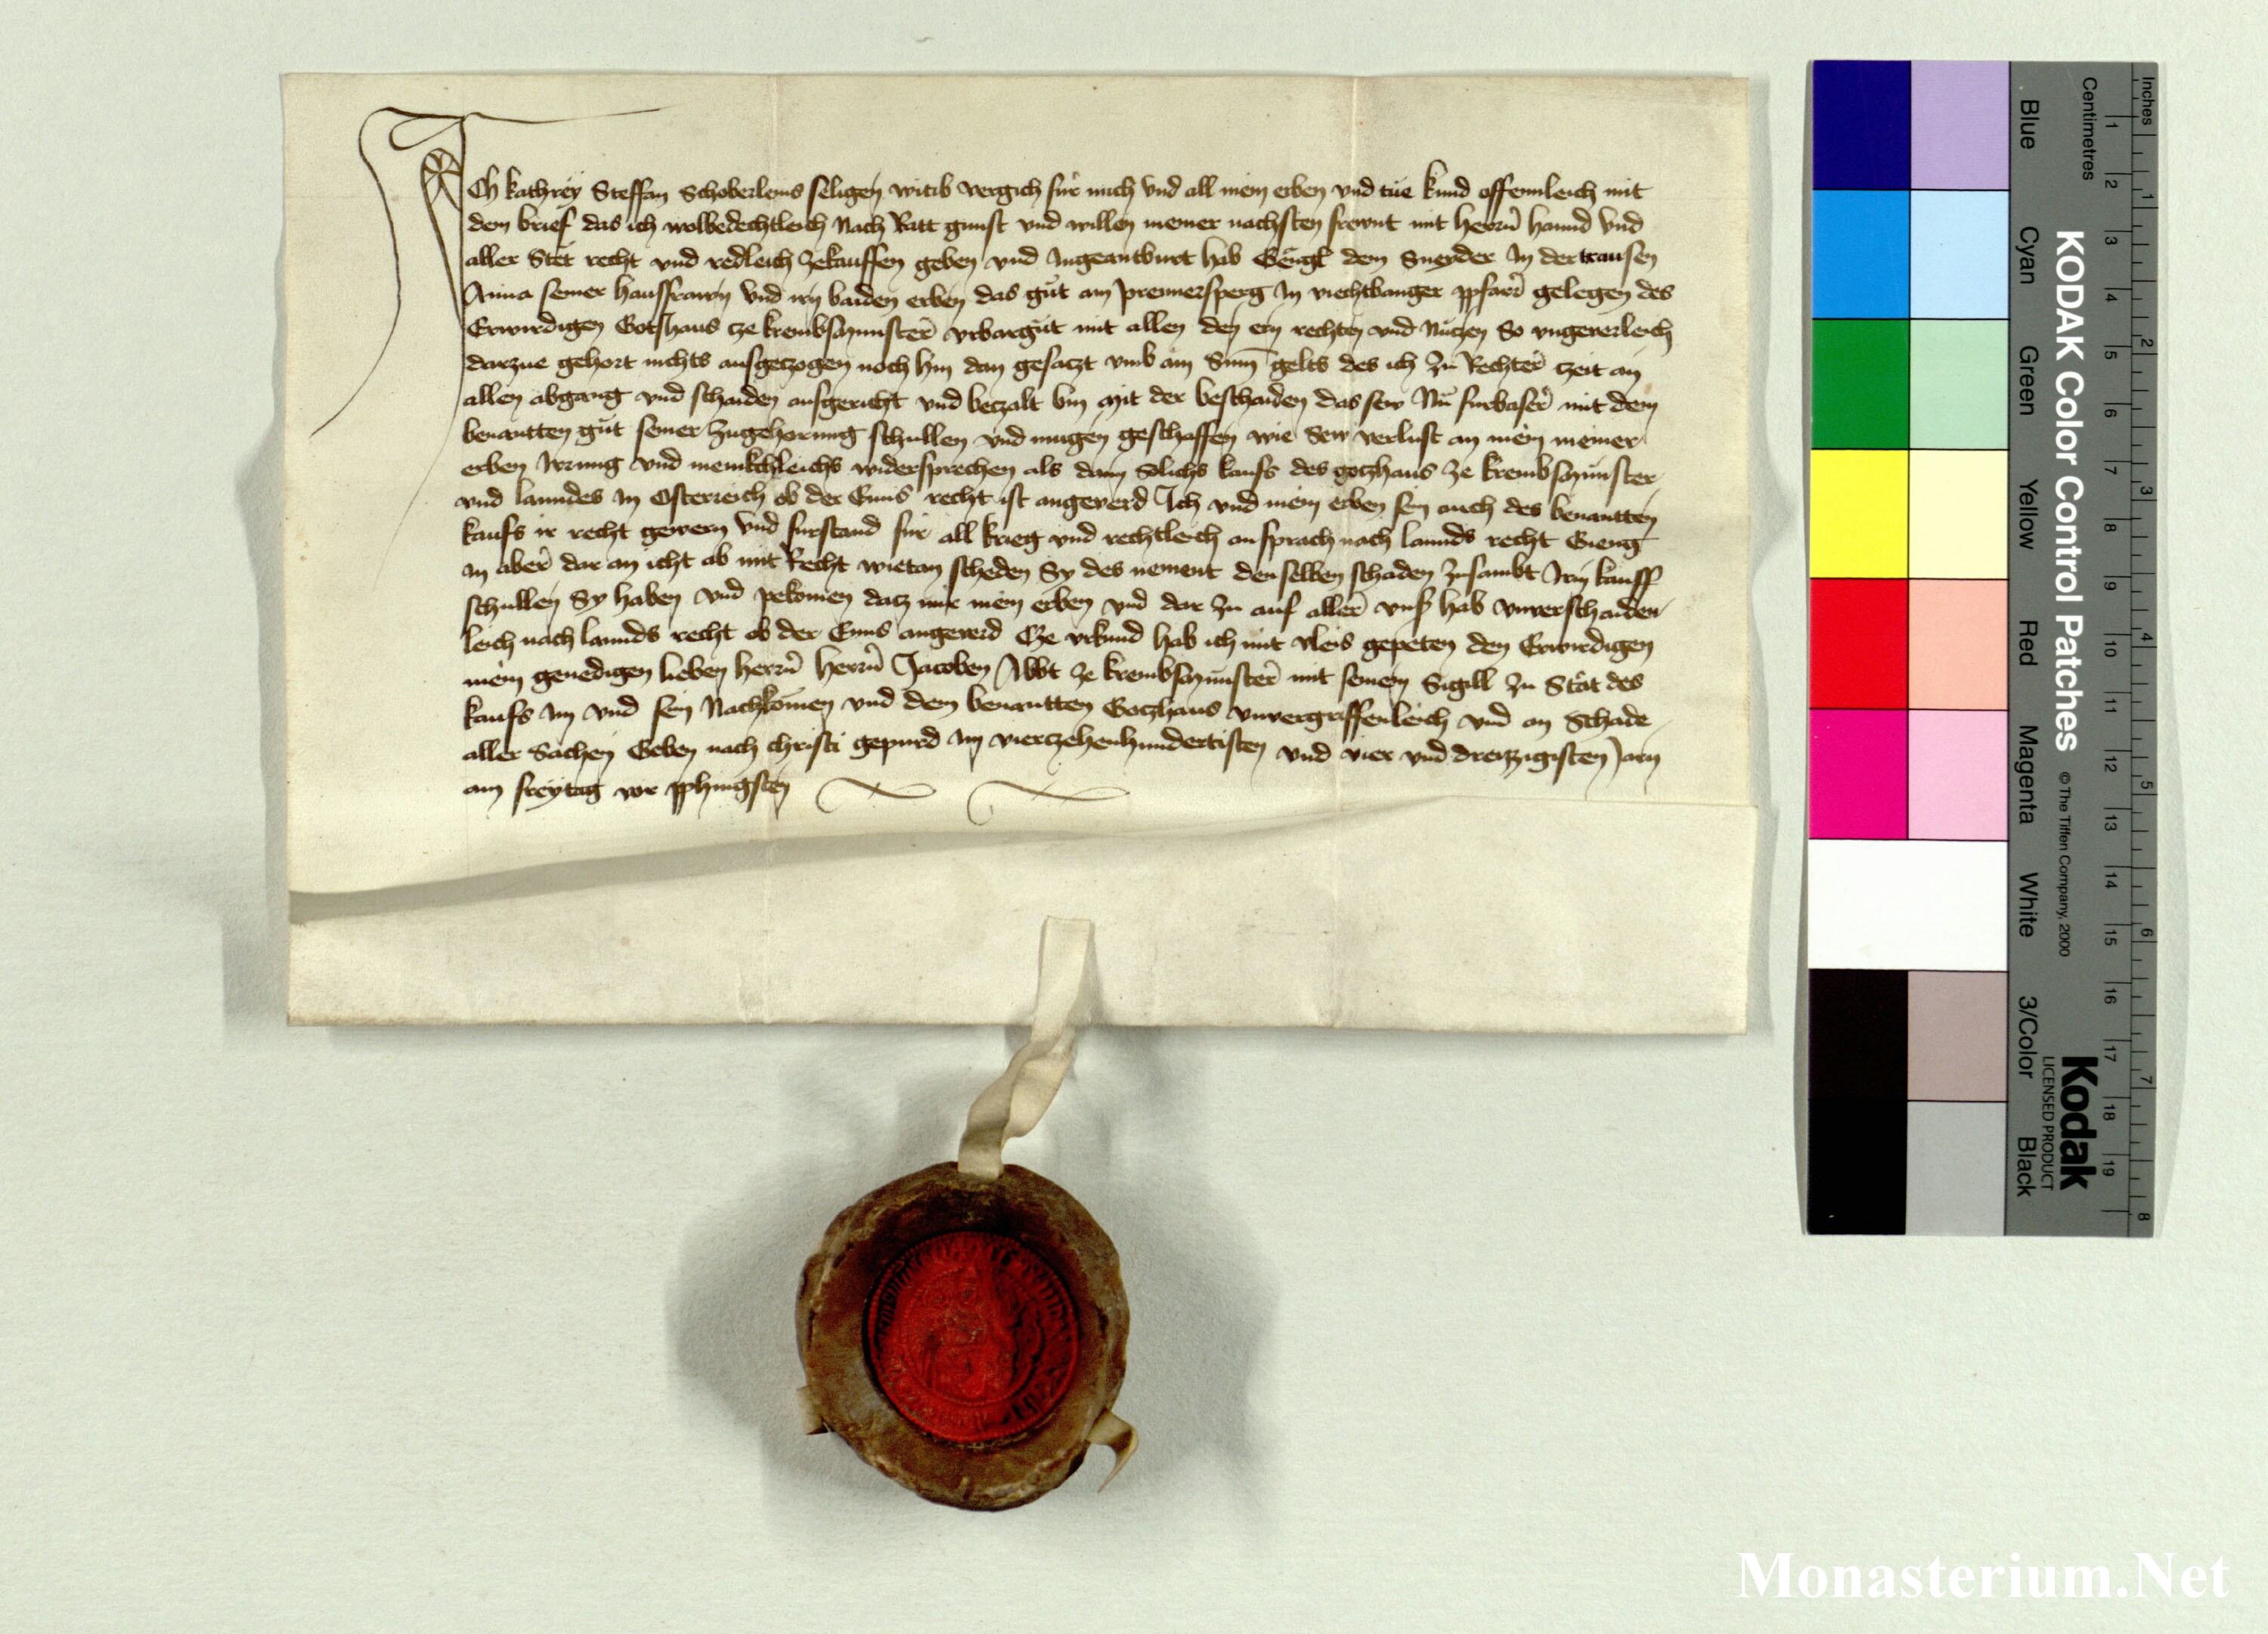 Ich kathrey Steffan Schoberleins seligen witib vergich für mich vnd all mein erben vnd tue kund offennleich mit
dem brief das ich wolbedechtleich Nach Ratt gunst vnd willen meiner nachsten frewnt mit herrñ hannd vnd
aller Stet recht vnd redleich zekauffen geben vnd Ingeantburt hab Gengl dem Sneyder In der trausen
Anna seiner hausfrawn vnd irn baiden erben das gut am premersperg In viechtbanger pfarr gelegen des
Erwirdigen Gotshaus ze krembsmunster vrbargut mit allen den ern rechten vnd Nutzen So vngeuerleich
darzue gehort nichts ausgezogen noch hin dan gesatzt vmb ain Sum gelts des ich zu Rechter tzeit an
allen abgang vnd schaden ausgericht vnd betzalt bin Mit der beschaiden das sew Nu furbaser mit dem
benantten gut seiner zugehorung schullen vnd mugen geschaffen wie Sew verlust an mein meiner
erben Irrung vnd menikchleichs widersprechen als dann Solichs kaufs des gotzhaus ze krembsmunster
vnd lanndes In Osterreich ob der Enns recht ist angeuerd Ich vnd mein erben sein auch des benantten
kaufs ir recht gewern vnd furstand fur all krieg vnd rechtleich ansprach nach lannds recht Gieng
in aber dar an icht ab mit Recht wietan scheden Sy des nement denselben schaden zusambt Irm kauff
schullen Sy haben vnd pekomen datz mir mein erben vnd dar zu auf aller vnser hab vnuerschaiden
leich nach lannds recht ob der Enns angeuerd Cze vrkund hab ich mit vleis gepeten den Erwirdigen
mein genedigen lieben herrñ herrñ Jacoben Abbt ze krembsmunster mit seinem Sigill zu Stät des
kaufs Im vnd sein Nachkomen vnd dem benantten Gotzhaus vnuergriffenleich vnd an Schade
aller Sachen Geben nach christi gepurd Im vierczehenhundertisten vnd vier vnd dreizzigisten Jarn
am freytag vor phingsten
Inches
Centimetres
1 2 3 4 5 6 7 8 9 10 11 12 13 14 15 16 17 18 19
1 2 3 4 5 6 7 8
Blue Cyan Green Yellow Red Magenta White 3/Color Black
KODAK Color Control Patches © The Tiffen Company, 2000
Kodak
LICENSED PRODUCT
Monasterium.Net